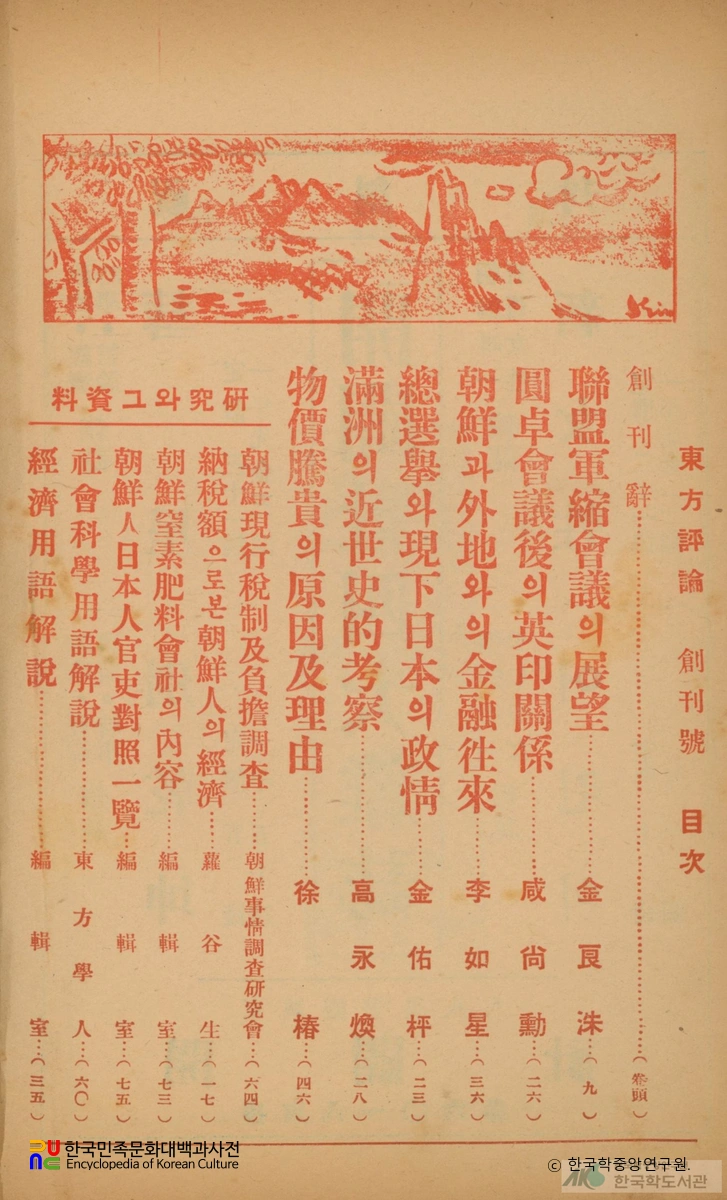 東方評論 創刊號 目次
創刊辭……(卷頭)
聯盟軍縮會議의展望……金良洙…(九)
圓卓會議後의英印關係……咸尙勳…(二六)
朝鮮과外地와의金融往來……李如星…(三六)
總選擧와現下日本의政情……金佑枰…(二三)
滿洲의近世史的考察……高永煥…(二八)
物價騰貴의原因及理由……徐椿…(四六)
研究와그資料
朝鮮現行稅制及負擔調査……朝鮮事情調査研究會…(六四)
納稅額으로본朝鮮人의經濟……蘿谷生…(一七)
朝鮮窒素肥料會社의內容……編輯室…(七三)
朝鮮人日本人官吏對照一覽……編輯室…(七五)
社會科學用語解說……東方學人…(六〇)
經濟用語解說……編輯室…(三五)
한국민족문화대백과사전
Encyclopedia of Korean Culture
ⓒ 한국학중앙연구원.
한국학도서관